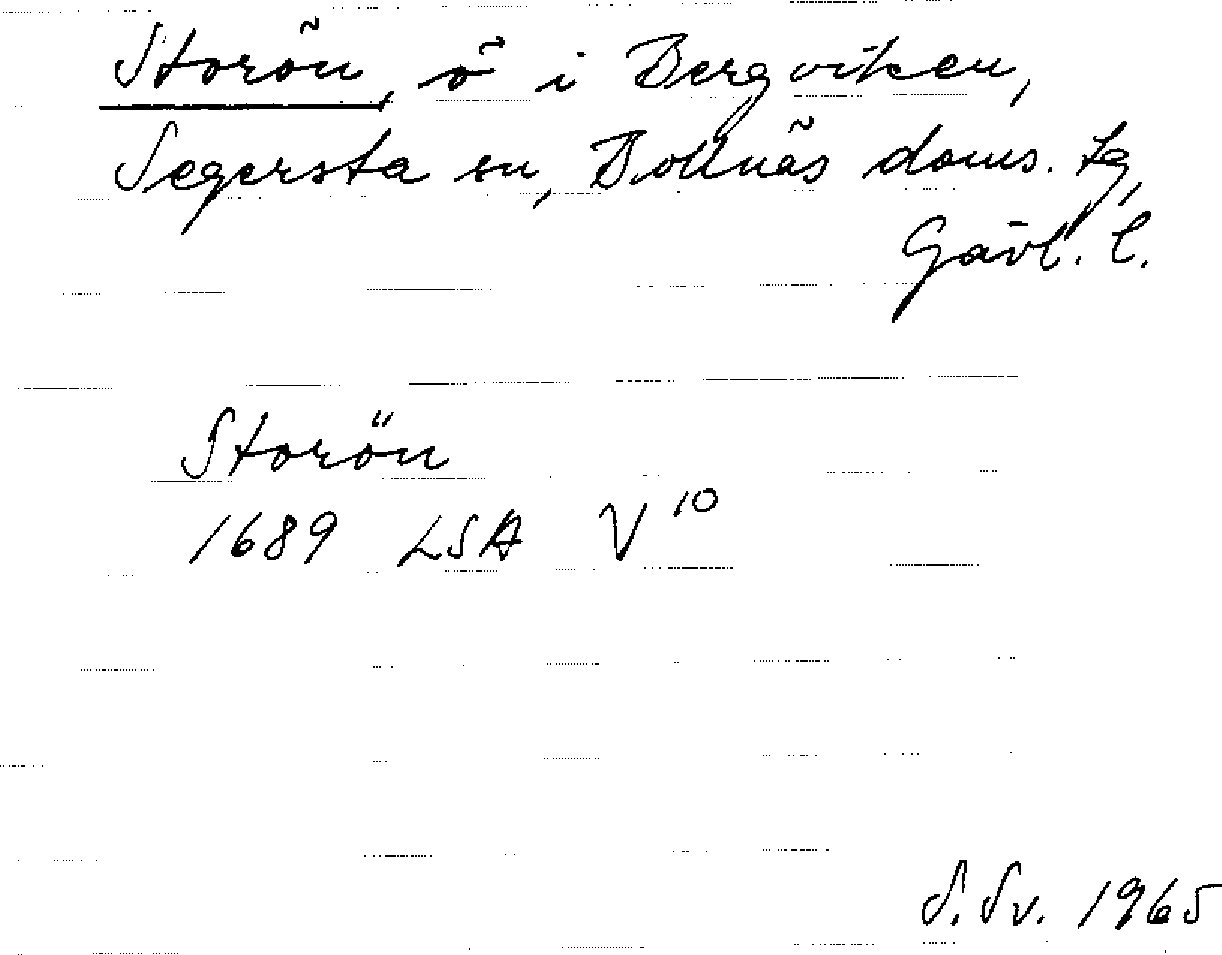 Storön, ö i Bergviken,
Segersta sn, Bollnäs doms. tg,
Gävl. l.
Storön
1689 LSA V 10
S. Sv. 1965